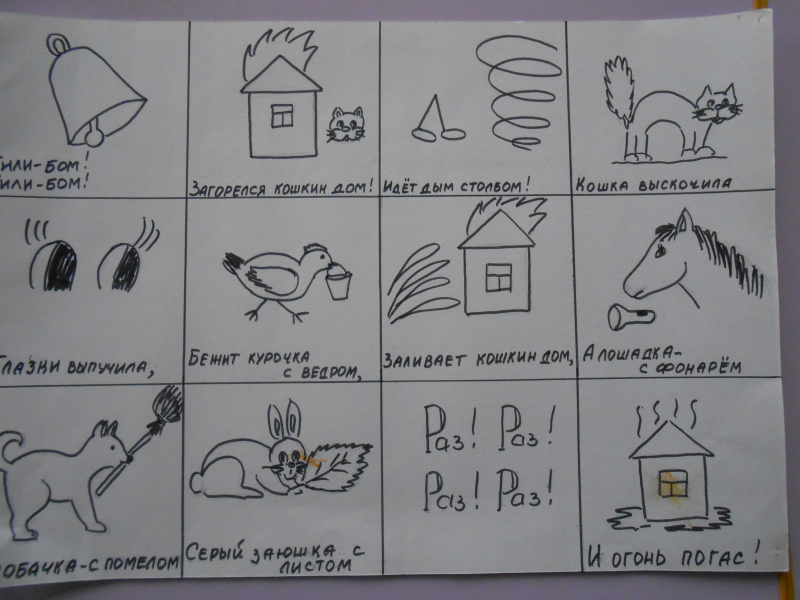 ТИЛИ-БОМ!
ТИЛИ-БОМ!
ЗАГОРЕЛСЯ КОШКИН ДОМ!
ИДЁТ ДЫМ СТОЛБОМ!
КОШКА ВЫСКОЧИЛА
ГЛАЗКИ ВЫПУЧИЛА,
БЕЖИТ КУРОЧКА
С ВЕДРОМ,
ЗАЛИВАЕТ КОШКИН ДОМ,
А ЛОШАДКА-
С ФОНАРЁМ
ОБАЧКА-С ПОМЕЛОМ
СЕРЫЙ ЗАЮШКА С
ЛИСТОМ
Раз! Раз!
Раз! Раз!
И ОГОНЬ ПОГАС!